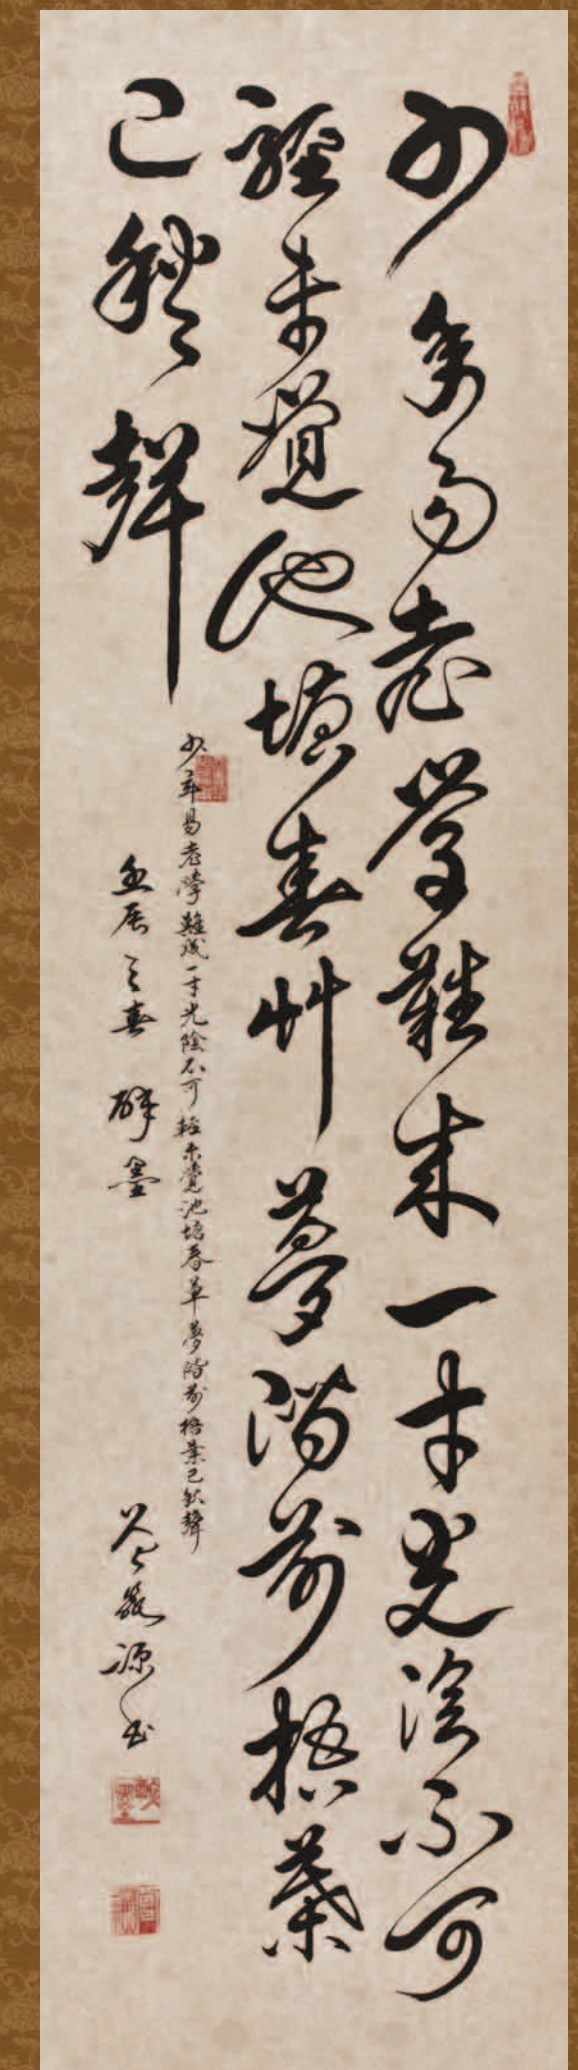 少年易老學難成一寸光陰不可
輕未覺池塘春艸夢階前梧葉
已秋聲
少年易老學難成一寸光陰不可輕未覺池塘春草夢階前梧葉已秋聲
之春 醉墨
源書